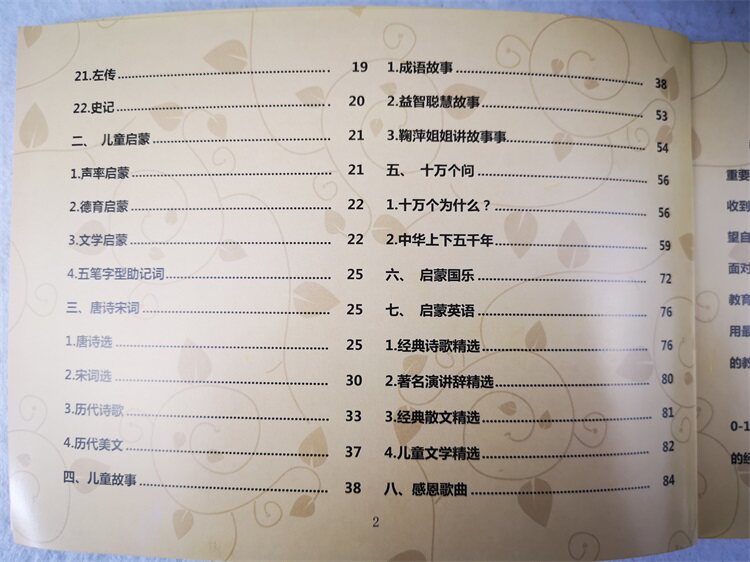 21.左传 19
22.史记 20
二、 儿童启蒙 21
1.声率启蒙 21
2.德育启蒙 22
3.文学启蒙 22
4.五笔字型助记词 25
三、唐诗宋词 25
1.唐诗选 25
2.宋词选 30
3.历代诗歌 33
4.历代美文 37
四、儿童故事 38
1.成语故事 38
2.益智聪慧故事 53
3.鞠萍姐姐讲故事事 54
五、 十万个问 56
1.十万个为什么？ 56
2.中华上下五千年 59
六、 启蒙国乐 72
七、 启蒙英语 76
1.经典诗歌精选 76
2.著名演讲辞精选 80
3.经典散文精选 81
4.儿童文学精选 82
八、感恩歌曲 84
2
重要
收到
望自
面对
教育
用最
的教
0-1
的经